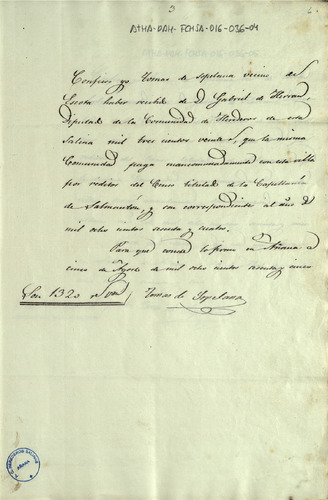 3
ATHA-DAH-FCHSA-016-036-04
Confieso yo Tomas de Sopelana vecino de
haber recibido de D. Gabriel de Herran,
Diputado de la Comunidad de Herederos de esta
Salina mil tres cientos veinte r.s que la misma
Comunidad paga mancomunadamente con esta villa
por reditos del Censo titulado de la Capellanía
de Salmanton, y son correspondientes al año de
mil ocho cientos cuatro.
Para que conste lo firmo en Añana a
cinco de de mil ocho cientos y cinco
Son 1320 r.s von
Tomas de Sopelana